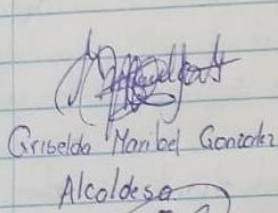 Griselda Maribel Gonzalez
Alcaldesa